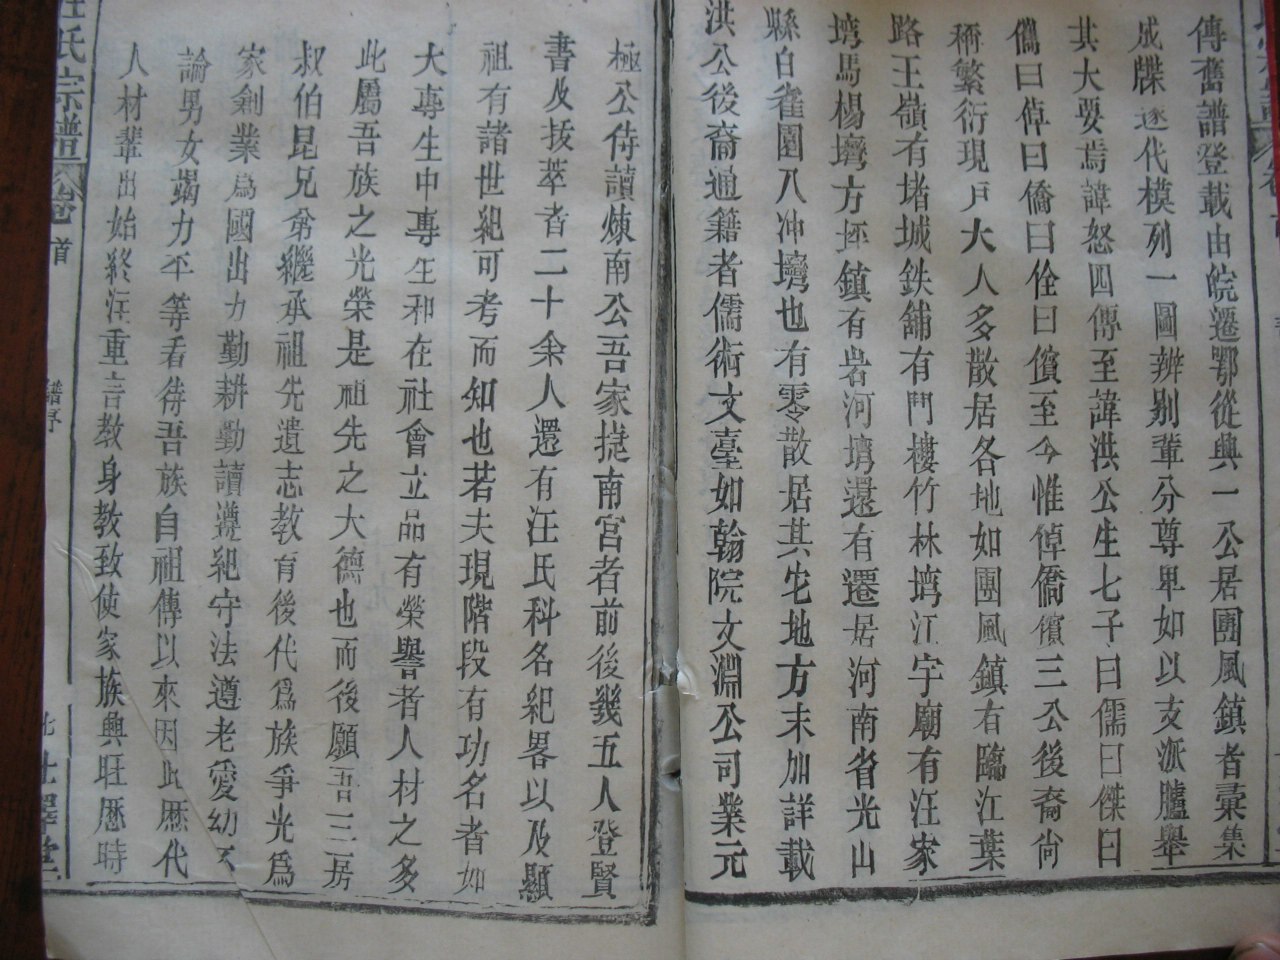 傳舊譜登載由皖遷鄂從興一公居團風鎮者彙集
成牒逐代模列一圖辨别輩分尊卑如以支派臚舉
其大要焉諱怒四傳至諱洪公生七子曰儒曰傑曰
儁曰倬曰僑曰佺曰儐至今惟倬僑儐三公後裔尙
稱繁衍現戸大人多散居各地如團風鎮有臨江葉
路王嶺有堵城鉄舖有門樓竹林塆江宇廟有汪家
塆馬楊壪方坯鎮有呰河塆還有遷居河南省光山
縣白雀園八冲壪也有零散居其宅地方末加詳載
洪公後裔通籍者儒術文臺如翰院文淵公司業元
極公侍讀煉南公吾家捷南宮者前後幾五人登賢
書及拔萃者二十余人還有汪氏科名紀畧以及顯
祖有諸世紀可考而知也若夫現階段有功名者如
大專生中專生和在社會立品有榮譽者人材之多
此屬吾族之光榮是祖先之大德也而後願吾三房
叔伯昆兄弟繼承祖先遺志教育後代爲族爭光爲
家創業爲國出力勤耕勤讀遵紀守法遵老愛幼不
論男女竭力平等看待吾族自祖傳以來因此歷代
人材輩出始終注重言教身教致使家族興旺歷時
汪氏宗譜 卷首 譜序